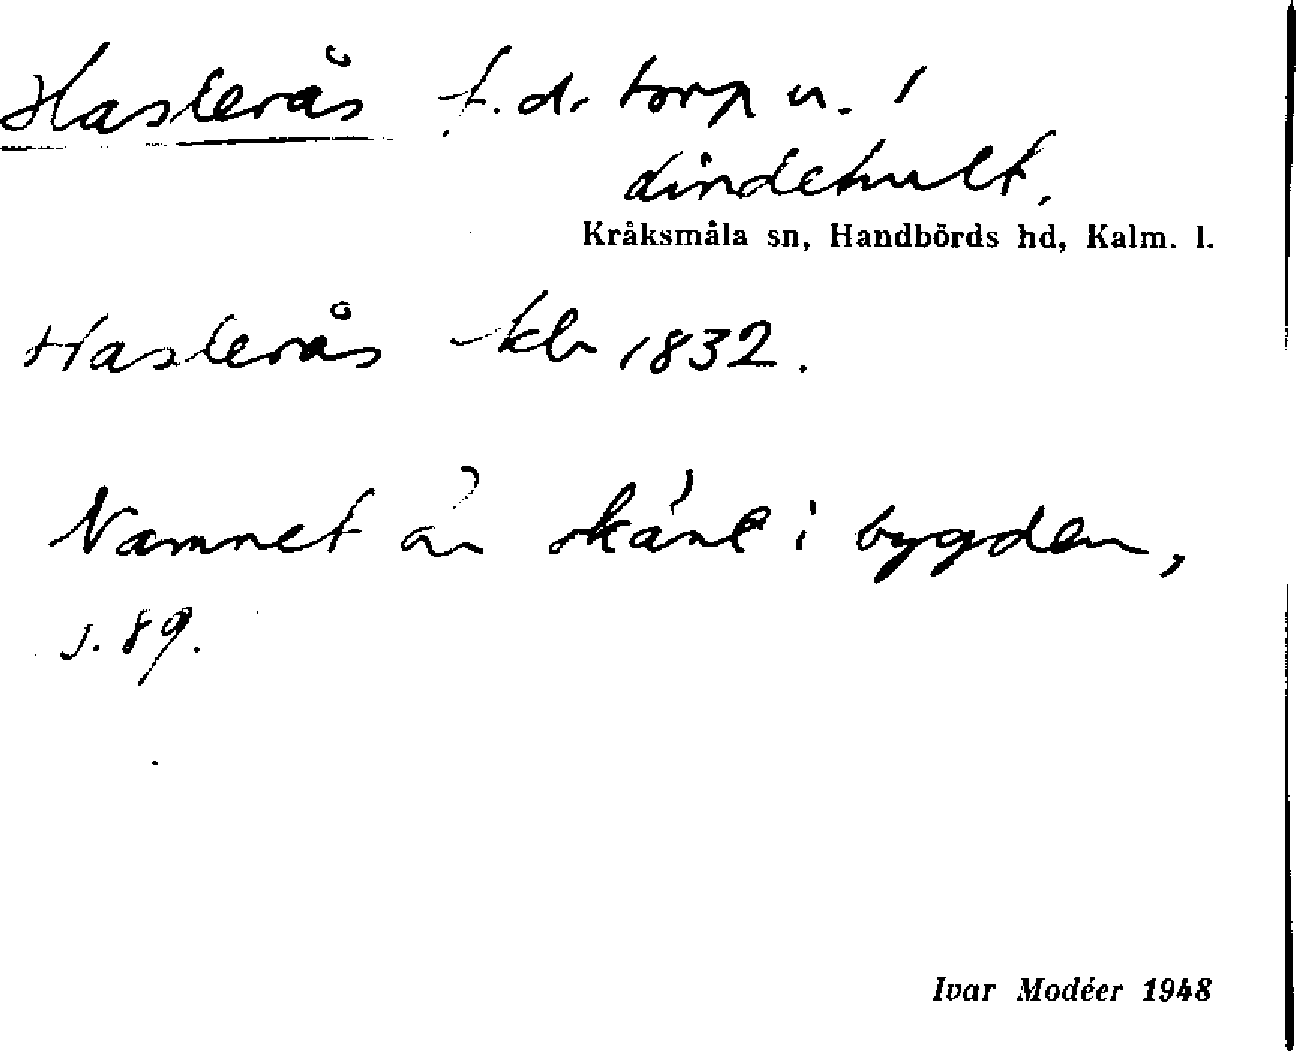 Haslerås f.d. torp u. 1
Lindehult.
Kråksmåla sn, Handbörds hd, Kalm. l.
Haslerås klr 1832.
Namnet är känt i bygden,
s. 89.
Ivar Modéer 1948